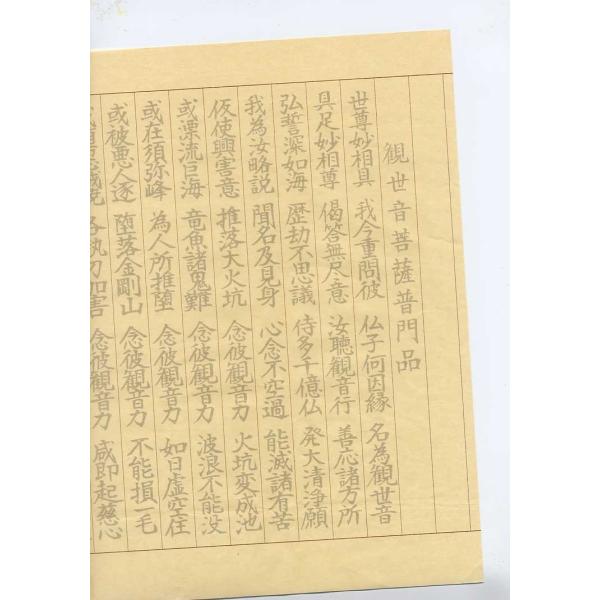 観世音菩薩普門品
世尊妙相具 我今重問彼 仏子何因縁 名為観世音
具足妙相尊 偈答無尽意 汝聴観音行 善応諸方所
弘誓深如海 歴劫不思議 侍多千億仏 発大清浄願
我為汝略説 聞名及見身 心念不空過 能滅諸有苦
仮使興害意 推落大火坑 念彼観音力 火坑変成池
或漂流巨海 竜魚諸鬼難 念彼観音力 波浪不能没
或在須弥峰 為人所推堕 念彼観音力 如日虚空住
或被悪人逐 堕落金剛山 念彼観音力 不能損一毛
各執刀加害 念彼観音力 咸即起慈心